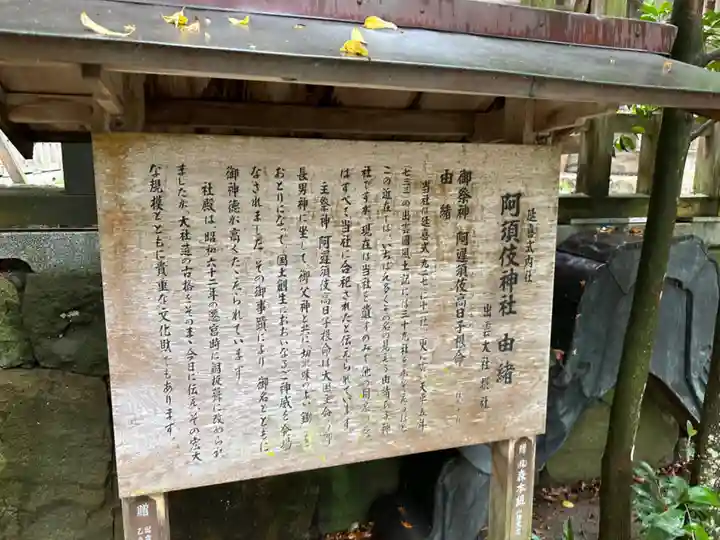 延喜式内社
阿須伎神社 由緒
出雲大社摂社
御祭神 阿遅須伎高日子根命
由緒
当社は延喜式
の出雲国風土記には三十九社
この近在ではいちばん多くその名の見える由緒
社ですが、現在は当社を遺すのみで他の
はすべて当社に合祀されたと伝えられています。
主祭神 阿遅須伎高日子根命は大国主命の御
長男神に坐して、御父神と共に切れ味のよい鋤を
おとりになって、国土創生におおいなるご神威を発揚
なされました。その御事蹟により、御名とともに
御神徳が高くたたえられています。
社殿は昭和六十二年の遷宮時に銅板葺に改められ
ましたが、大社造の古格をそのまま今日に伝え、その宏大
な規模とともに貴重な文化財でもあります。
森本組